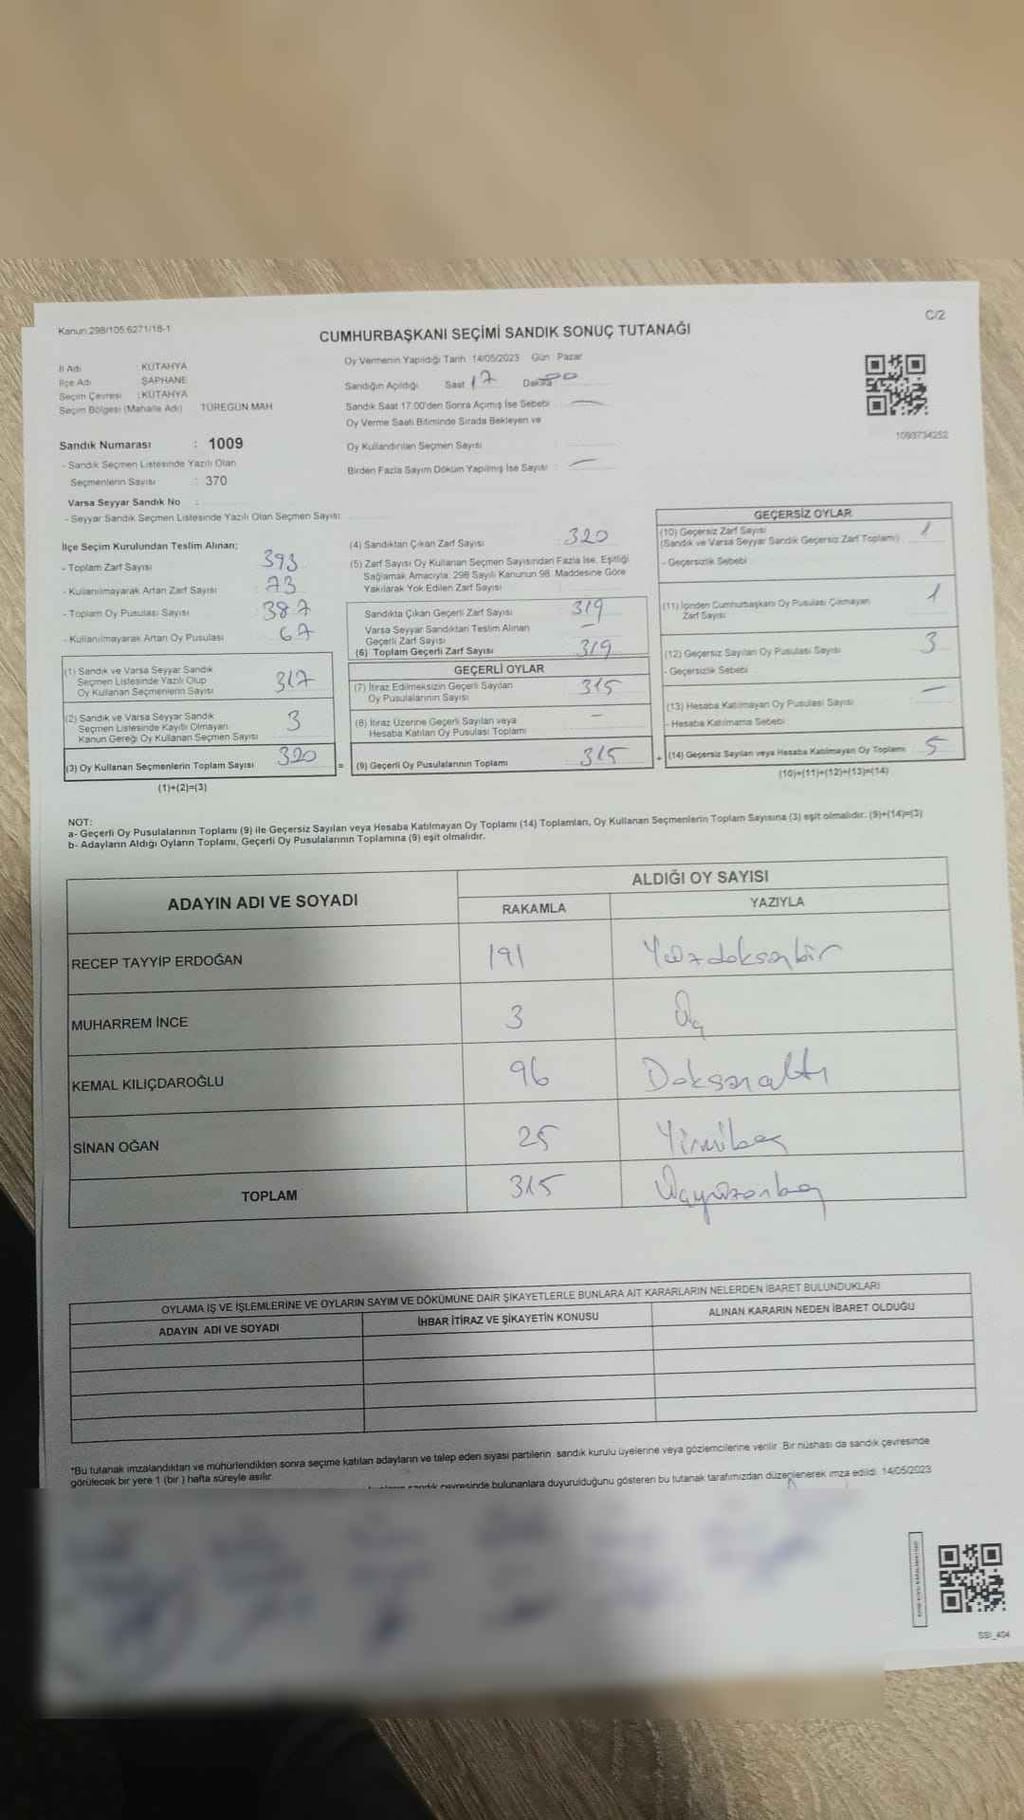 Kanun:298/105 6271/18-1
C/2
CUMHURBAŞKANI SEÇİMİ SANDIK SONUÇ TUTANAĞI
İl Adı KÜTAHYA
İlçe Adı ŞAPHANE
Seçim Çevresi : KÜTAHYA
Seçim Bölgesi (Mahalle Adı) TÜREGÜN MAH
Sandık Numarası : 1009
- Sandık Seçmen Listesinde Yazılı Olan
Seçmenlerin Sayısı : 370
Varsa Seyyar Sandık No :
- Seyyar Sandık Seçmen Listesinde Yazılı Olan Seçmen Sayısı
Oy Vermenin Yapıldığı Tarih 14/05/2023 Gün : Pazar
Sandığın Açıldığı Saat 17 Dakika 00
Sandık Saat 17.00'den Sonra Açılmış İse Sebebi : —
Oy Verme Saati Bitiminde Sırada Bekleyen ve
Oy Kullandırılan Seçmen Sayısı
Birden Fazla Sayım Döküm Yapılmış İse Sayısı : —
1093734252
İlçe Seçim Kurulundan Teslim Alınan;
- Toplam Zarf Sayısı 393
- Kullanılmayarak Artan Zarf Sayısı 73
- Toplam Oy Pusulası Sayısı 387
- Kullanılmayarak Artan Oy Pusulası 67
(1) Sandık ve Varsa Seyyar Sandık
Seçmen Listesinde Yazılı Olup
Oy Kullanan Seçmenlerin Sayısı 317
(2) Sandık ve Varsa Seyyar Sandık
Seçmen Listesinde Kayıtlı Olmayan
Kanun Gereği Oy Kullanan Seçmen Sayısı 3
(3) Oy Kullanan Seçmenlerin Toplam Sayısı 320
(1)+(2)=(3)
(4) Sandıktan Çıkan Zarf Sayısı 320
(5) Zarf Sayısı Oy Kullanan Seçmen Sayısından Fazla İse, Eşitliği
Sağlamak Amacıyla, 298 Sayılı Kanunun 98. Maddesine Göre
Yakılarak Yok Edilen Zarf Sayısı
Sandıkta Çıkan Geçerli Zarf Sayısı 319
Varsa Seyyar Sandıktan Teslim Alınan
Geçerli Zarf Sayısı —
(6) Toplam Geçerli Zarf Sayısı 319
GEÇERLİ OYLAR
(7) İtiraz Edilmeksizin Geçerli Sayılan
Oy Pusulalarının Sayısı 315
(8) İtiraz Üzerine Geçerli Sayılan veya
Hesaba Katılan Oy Pusulası Toplamı —
= (9) Geçerli Oy Pusulalarının Toplamı 315
GEÇERSİZ OYLAR
(10) Geçersiz Zarf Sayısı 1
(Sandık ve Varsa Seyyar Sandık Geçersiz Zarf Toplamı)
- Geçersizlik Sebebi
(11) İçinden Cumhurbaşkanı Oy Pusulası Çıkmayan
Zarf Sayısı 1
(12) Geçersiz Sayılan Oy Pusulası Sayısı 3
- Geçersizlik Sebebi
(13) Hesaba Katılmayan Oy Pusulası Sayısı —
- Hesaba Katılmama Sebebi
+ (14) Geçersiz Sayılan veya Hesaba Katılmayan Oy Toplamı 5
(10)+(11)+(12)+(13)=(14)
NOT:
a- Geçerli Oy Pusulalarının Toplamı (9) ile Geçersiz Sayılan veya Hesaba Katılmayan Oy Toplamı (14) Toplamları, Oy Kullanan Seçmenlerin Toplam Sayısına (3) eşit olmalıdır. (9)+(14)=(3)
b- Adayların Aldığı Oyların Toplamı, Geçerli Oy Pusulalarının Toplamına (9) eşit olmalıdır.
ADAYIN ADI VE SOYADI
ALDIĞI OY SAYISI
RAKAMLA YAZIYLA
RECEP TAYYİP ERDOĞAN 191 Yüzdoksanbir
MUHARREM İNCE 3 Üç
KEMAL KILIÇDAROĞLU 96 Doksanaltı
SİNAN OĞAN 25 Yirmibeş
TOPLAM 315 Üçyüzonbeş
OYLAMA İŞ VE İŞLEMLERİNE VE OYLARIN SAYIM VE DÖKÜMÜNE DAİR ŞİKAYETLERLE BUNLARA AİT KARARLARIN NELERDEN İBARET BULUNDUKLARI
ADAYIN ADI VE SOYADI
İHBAR İTİRAZ VE ŞİKAYETİN KONUSU
ALINAN KARARIN NEDEN İBARET OLDUĞU
*Bu tutanak imzalandıktan ve mühürlendikten sonra seçime katılan adayların ve talep eden siyasi partilerin sandık kurulu üyelerine veya gözlemcilerine verilir. Bir nüshası da sandık çevresinde
görülecek bir yere 1 (bir) hafta süreyle asılır.
sandık çevresinde bulunanlara duyurulduğunu gösteren bu tutanak tarafımızdan düzenlenerek imza edildi. 14/05/2023
SSI_404